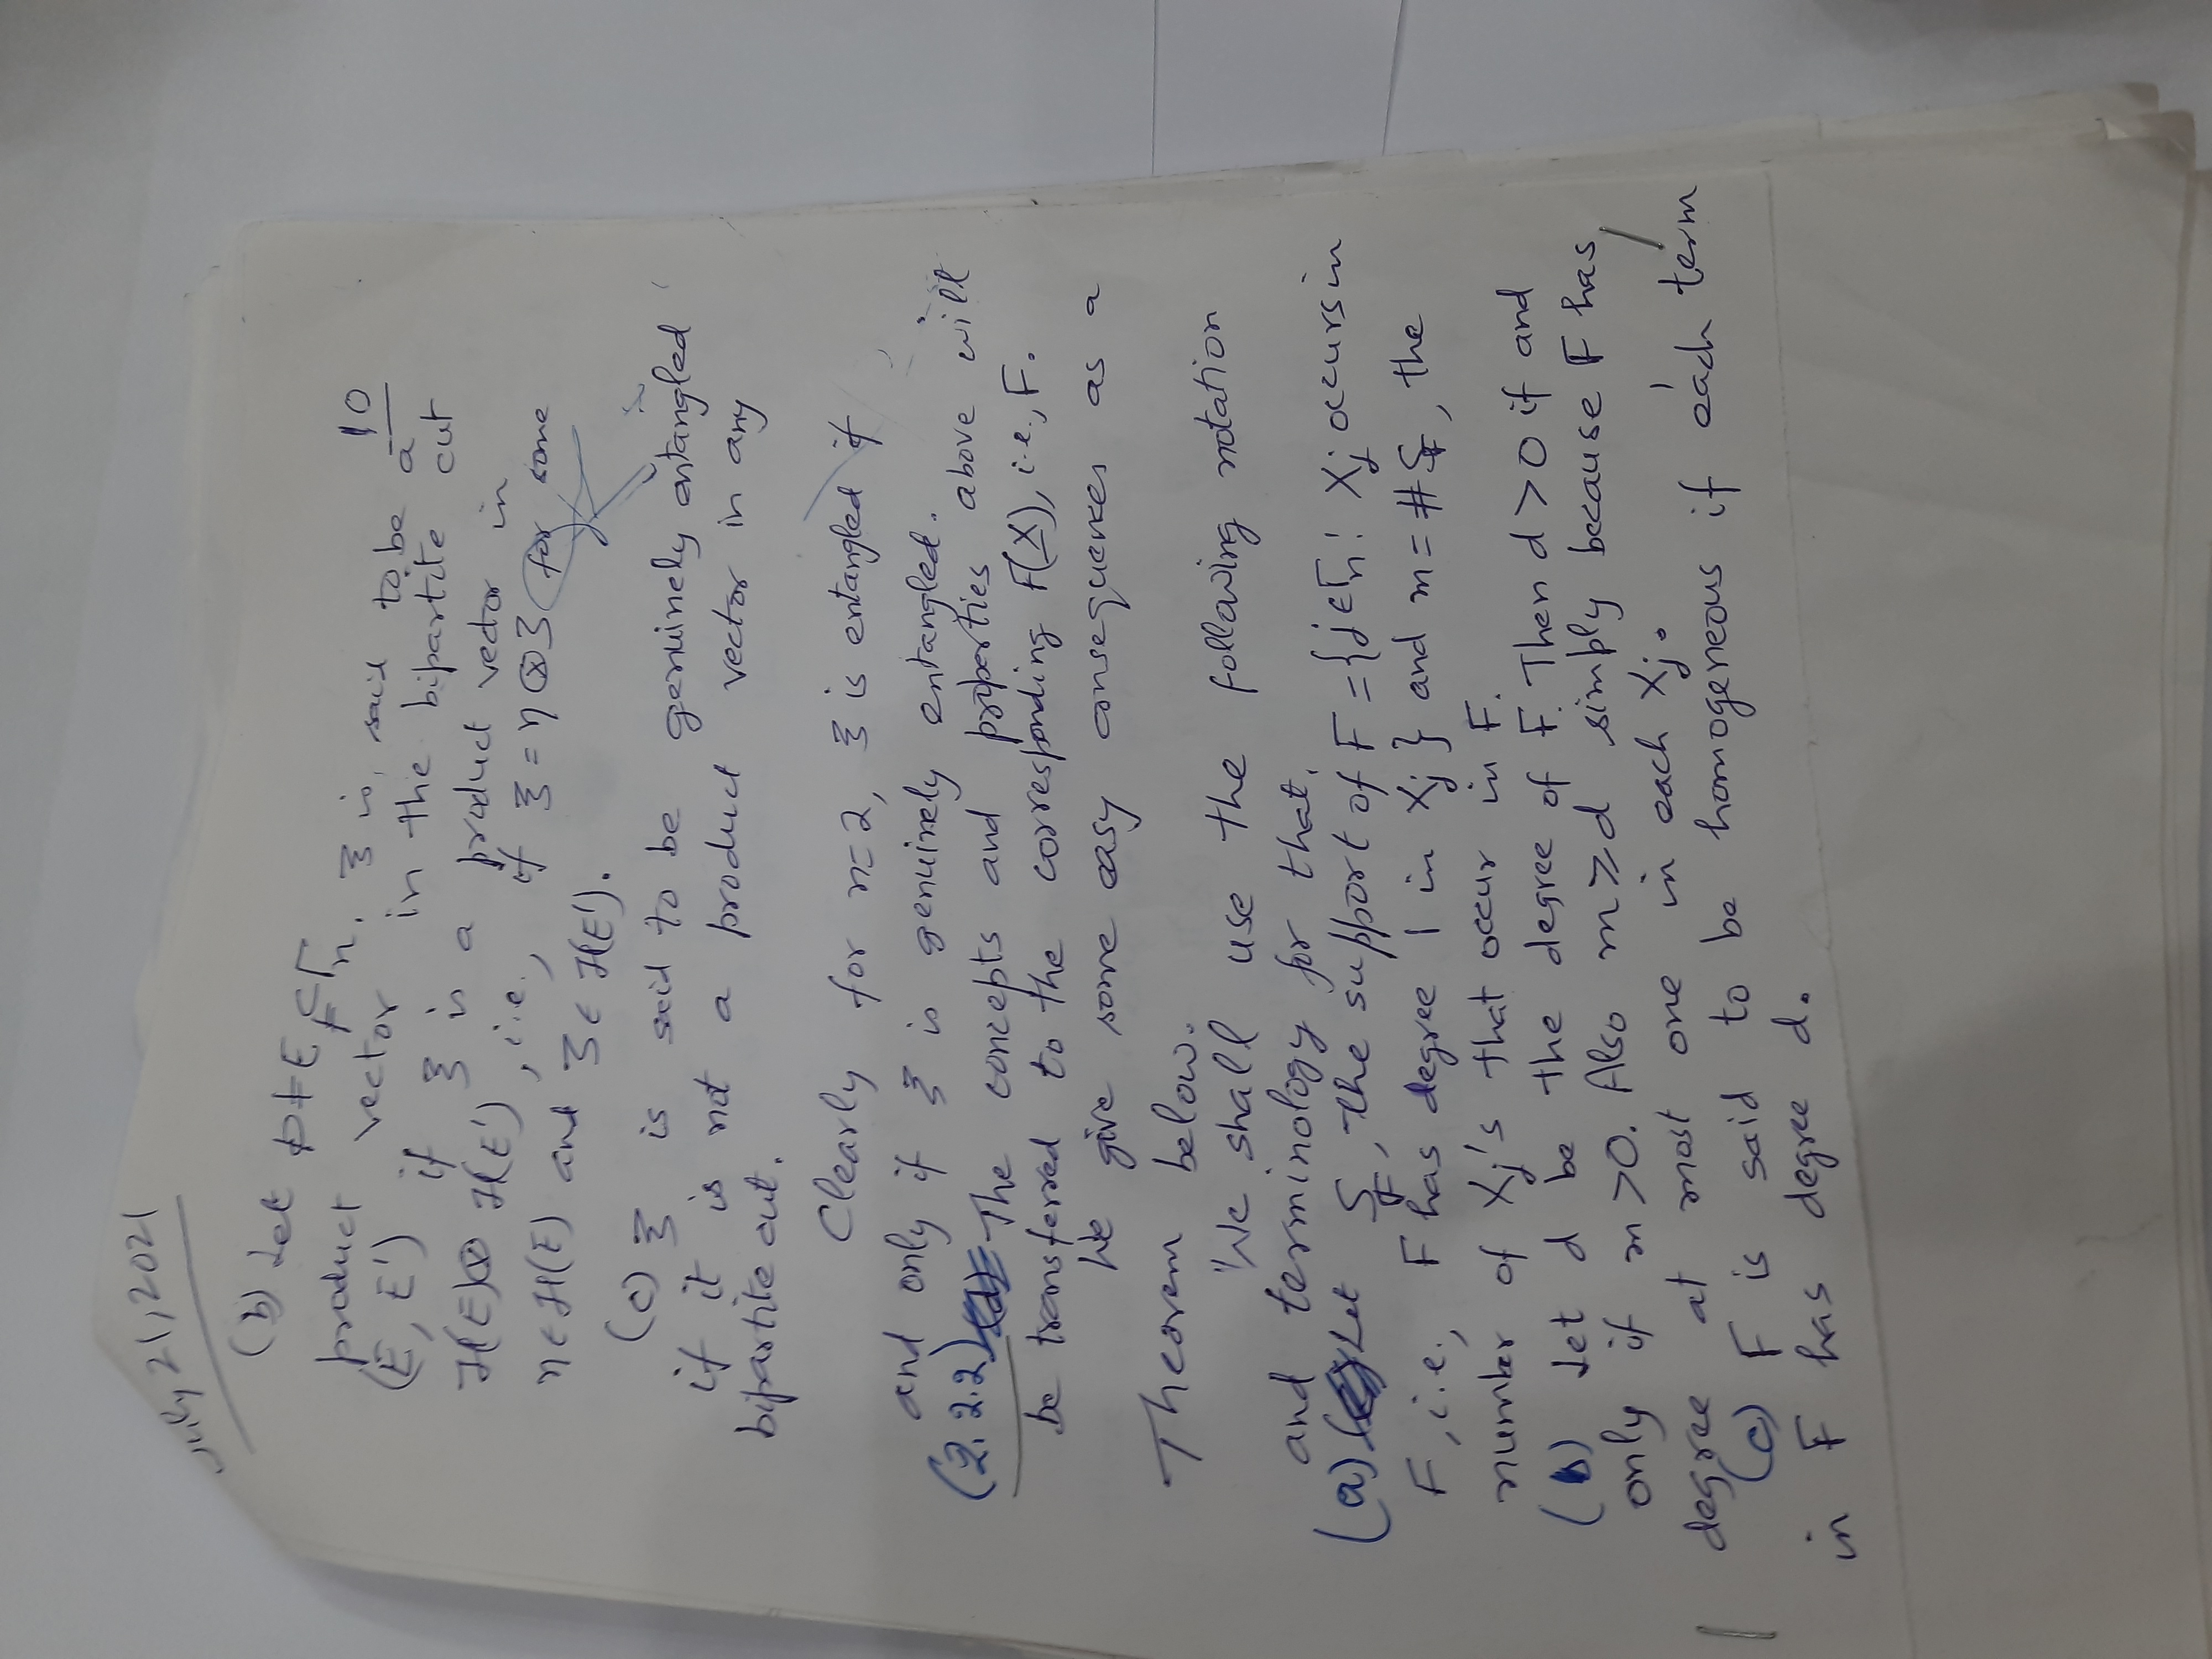 July 21, 2021
10
(b) Let ϕ ≠ E ⊊ Γₙ. ξ is said to be a
product vector in the bipartite cut
(E, E') if ξ is a product vector in
ℋ(E)⊗ ℋ(E'), i.e., if ξ = η ⊗ ζ for some
η ∈ ℋ(E) and ζ ∈ ℋ(E').
(c) ξ is said to be genuinely entangled
if it is not a product vector in any
bipartite cut.
Clearly for n=2, ξ is entangled if
and only if ξ is genuinely entangled.
(2.2.2) The concepts and properties above will
be transferred to the corresponding F(X), i.e., F.
We give some easy consequences as a
Theorem below.
We shall use the following notation
and terminology for that.
(a) Let S_F, the support of F = {j ∈ Γₙ : Xⱼ occurs in
F, i.e., F has degree 1 in Xⱼ} and m = # S_F, the
number of Xⱼ's that occur in F.
(b) Let d be the degree of F. Then d > 0 if and
only if m > 0. Also m ≥ d simply because F has
degree at most one in each Xⱼ.
(c) F is said to be homogeneous if each term
in F has degree d.